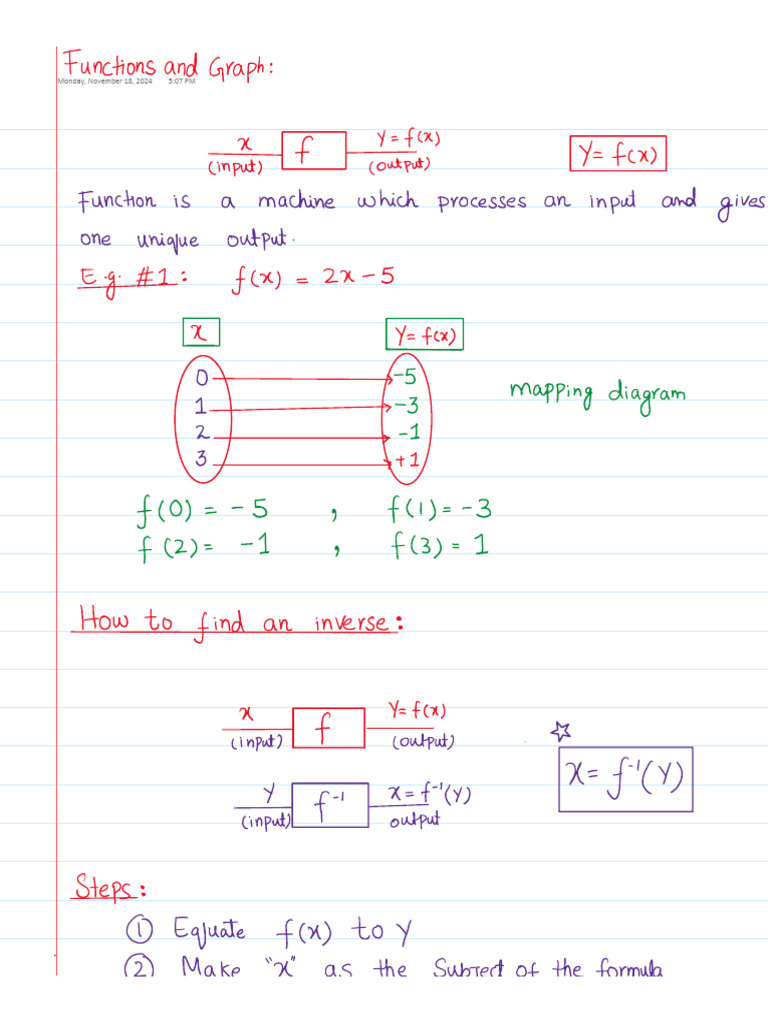 Functions and Graph:
Monday, November 18, 2024 5:07 PM
x f Y = f(x) Y= f(x)
(input) (output)
Function is a machine which processes an input and gives
one unique output.
E.g. #1: f(x) = 2x – 5
x Y= f(x)
0 -5
1 -3
2 -1
3 +1
mapping diagram
f(0) = -5 , f(1) = -3
f(2) = -1 , f(3) = 1
How to find an inverse:
x f Y= f(x)
(input) (output)
x= f⁻¹(Y)
Y f⁻¹ x = f⁻¹(Y)
(input) output
Steps:
① Equate f(x) to y
② Make "x" as the Subject of the formula